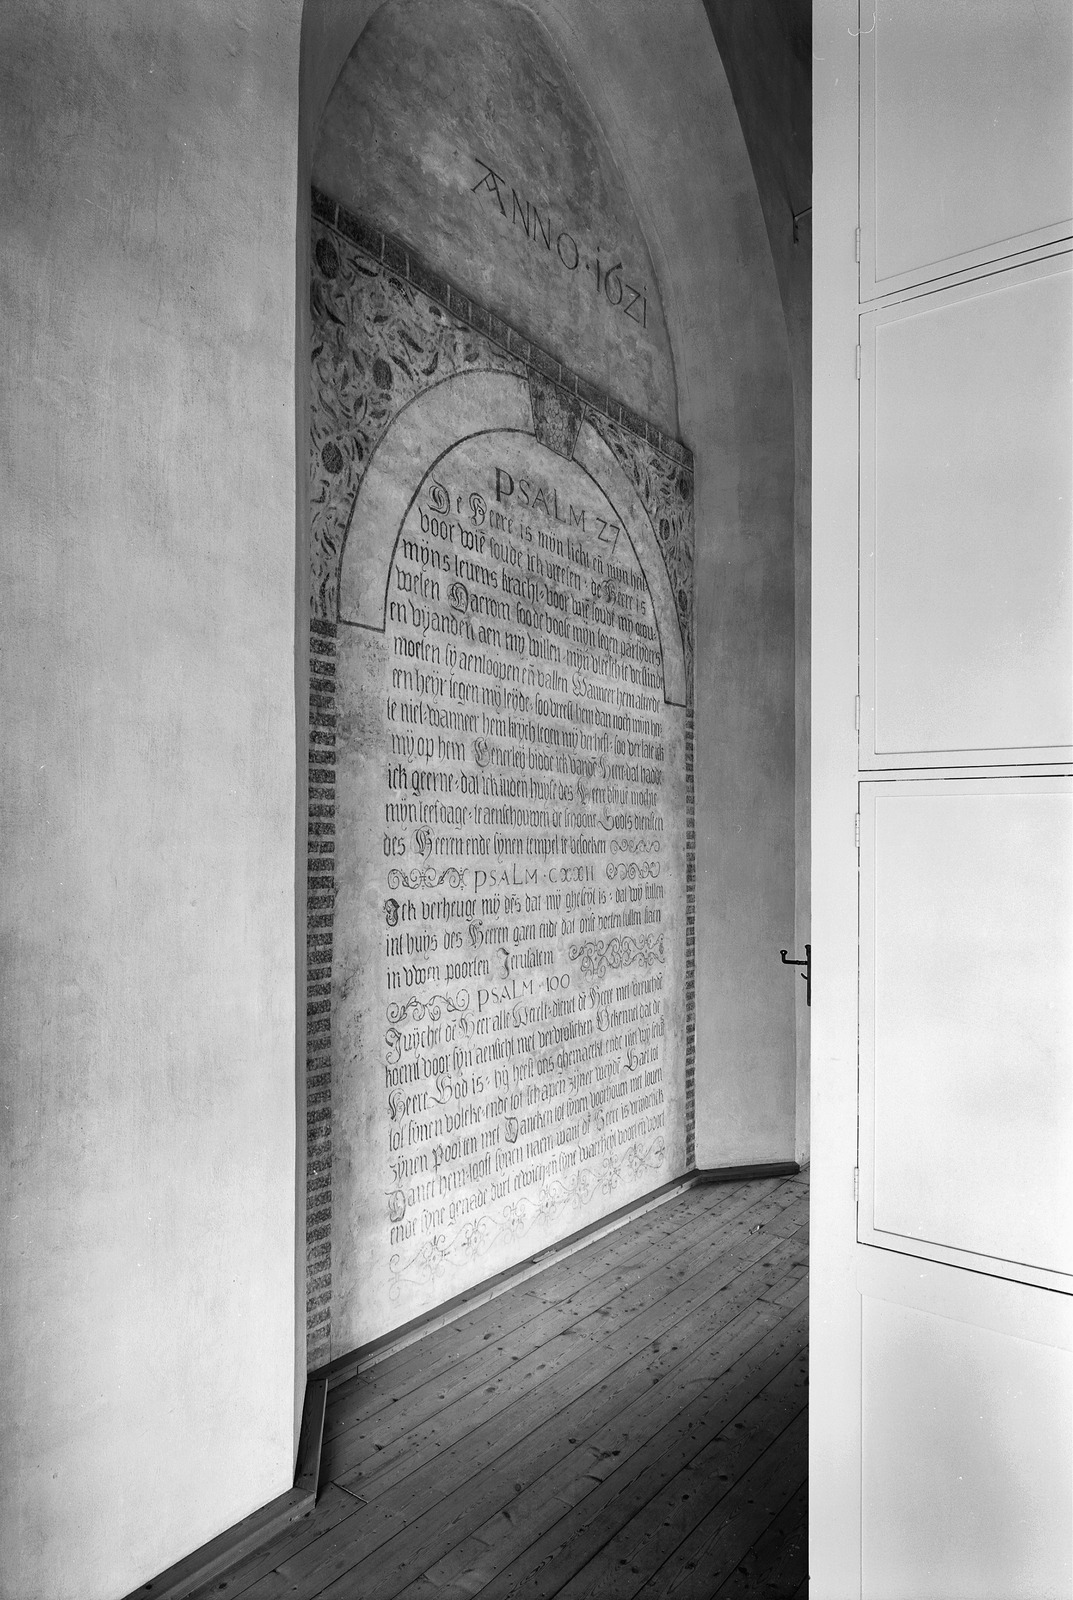 ANNO·1621
PSALM 27
De Heere is mijn licht eñ mijn heil
voor wiē soude ick vreesen · de Heere is
mijns levens kracht · voor wiē soude mij grou-
welen Daerom soo de boose mijn tegen partijders
en vijanden aen mij willen · mijn vleesch te verslinden
moeten sij aenloopen eñ vallen Wanneer hem alreede
een heyr tegen mij leyde · soo vreest hem dan noch mijn her
te niet · wanneer hem krych tegen mij verheft · soo verlate ick
mij op hem Eenerley bidde ick vandē Heere · dat hadde
ick geerne · dat ick inden huyse des Heere blyvē mochte
mijn leefdage · te aenschouwen de schoone Godts diensten
des Heeren ende synen tempel te besoecken
PSALM · CXXII
Ick verheuge mij des dat mij gheseyt is · dat wij sullen
int huys des Heeren gaen ende dat onse voeten sullen staen
in uwen poorten Jerusalem
PSALM · 100
Juychet dē Heer alle Werelt · dienet dē Heere met vreuchdē
koemt voor syn aensicht met verbrolicken Bekennet dat de
Heere God is · hij heeft ons ghemaeckt ende niet wij selfs
tot synen volcke · ende tot schapen zijner weydē Gaet tot
zijnen Poorten met Dancken tot synen voorhoven met loven
Dancket hem · looft synen naem want dē Heere is vrindelick
ende syne genade duert eewich · en syne waerheyt voort en voort